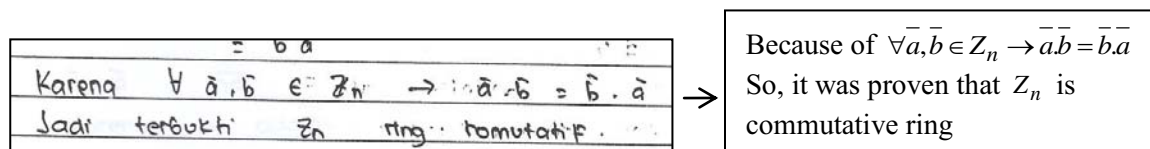 = b a
Karena ∀ ā, b̄ ∈ Zn → ā . b̄ = b̄ . ā
Jadi terbukti Zn ring komutatif.
Because of ∀ā,b̄ ∈ Zn → ā.b̄ = b̄.ā
So, it was proven that Zn is
commutative ring